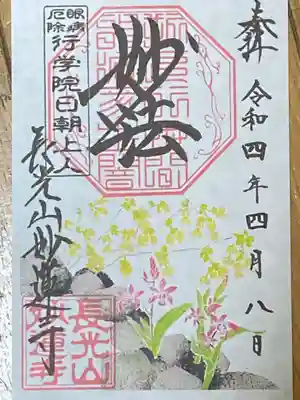 奉拝 令和四年四月八日
妙法
眼病
厄除
行学院日朝上人
長光山妙蓮寺
長光山
妙蓮寺